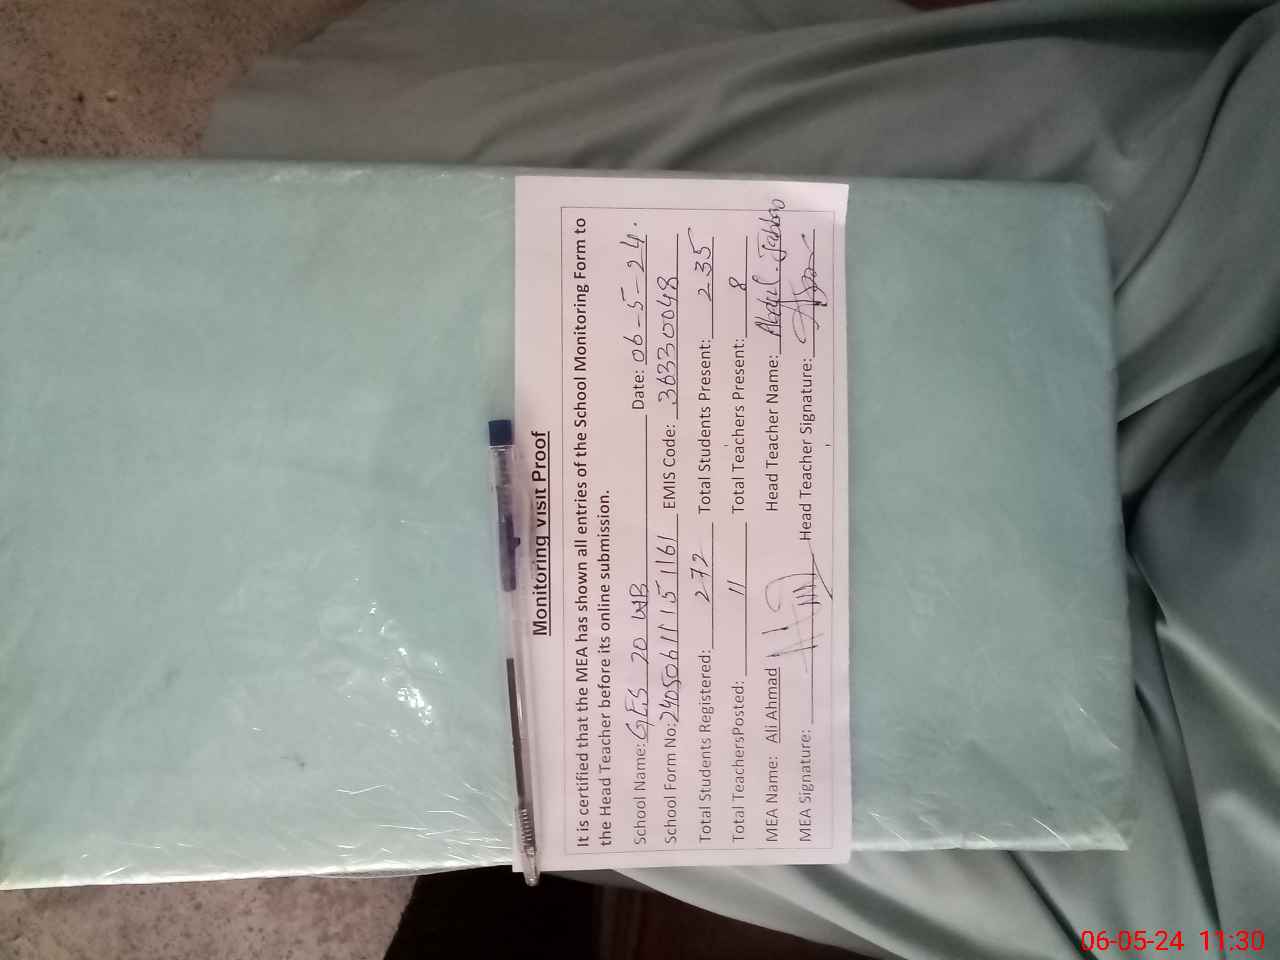 Monitoring Visit Proof
It is certified that the MEA has shown all entries of the School Monitoring Form to
the Head Teacher before its online submission.
School Name: GES 20 WB Date: 06-5-24.
School Form No: 24050611151161 EMIS Code: 36330048
Total Students Registered: 272 Total Students Present: 235
Total TeachersPosted: 11 Total Teachers Present: 8
MEA Name: Ali Ahmad Head Teacher Name: Abdul. Jabbar
MEA Signature: Head Teacher Signature:
06-05-24 11:30